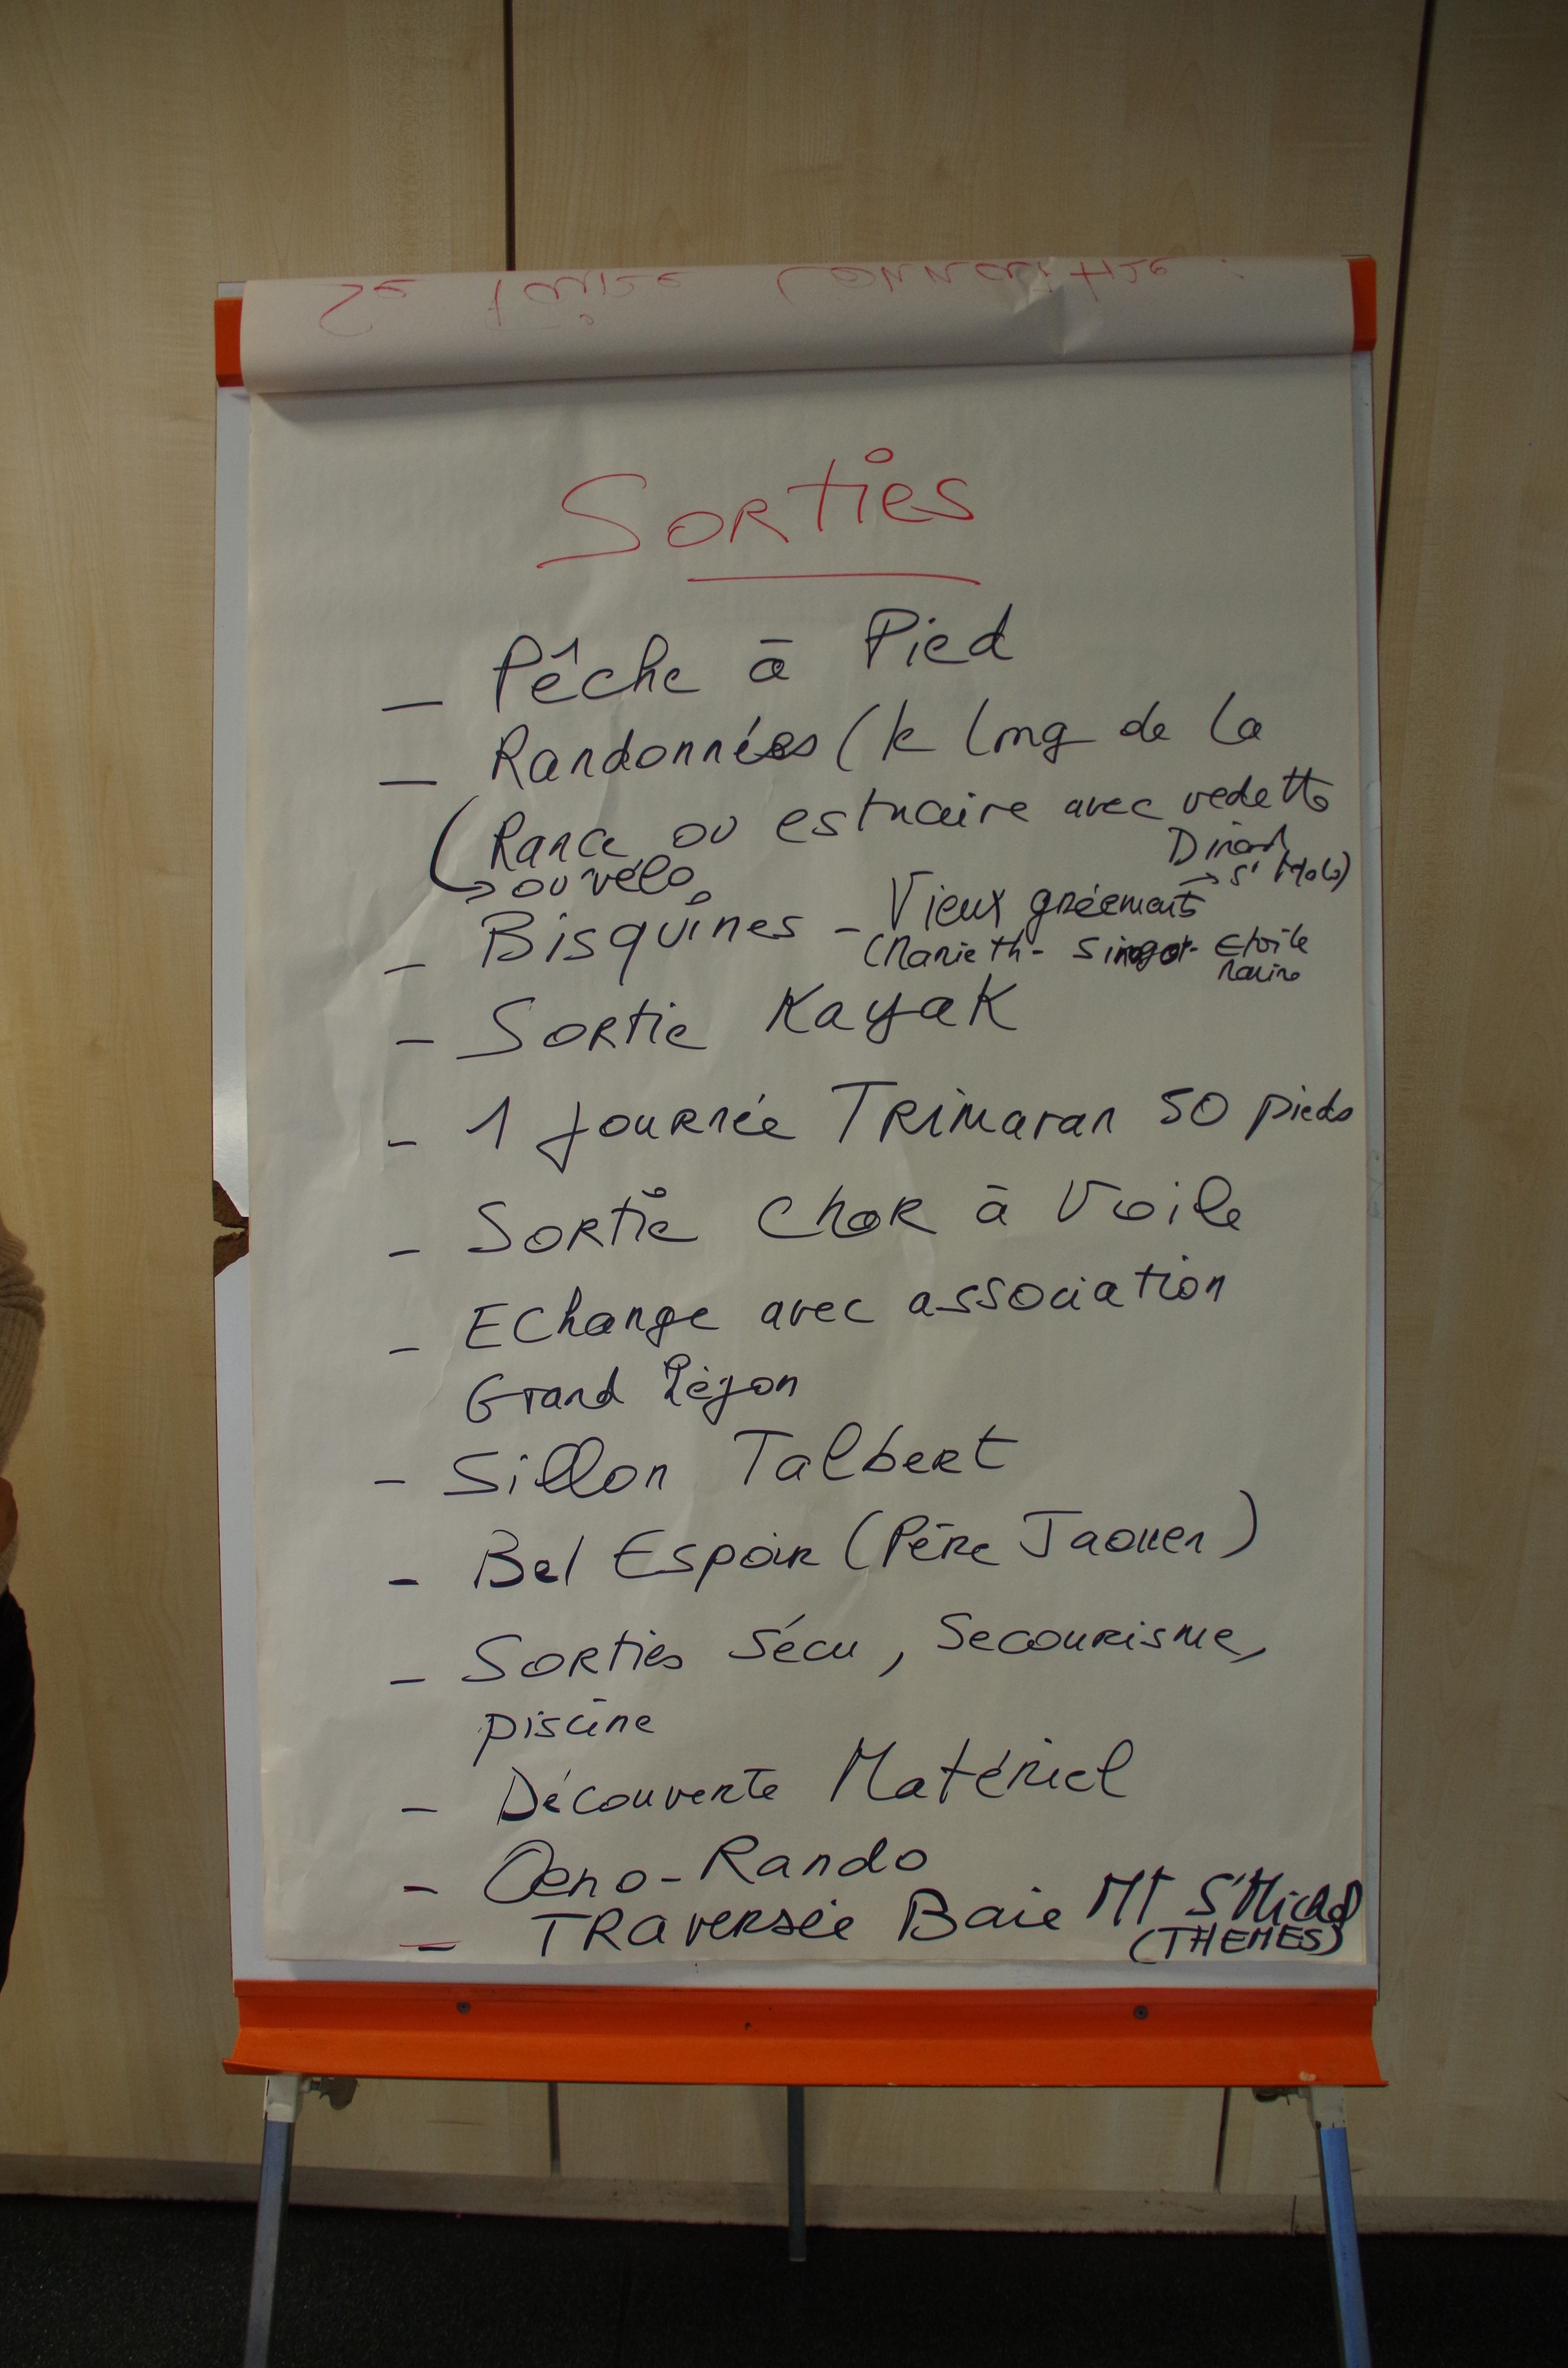 Se faire connaitre :
Sorties
- Pêche à Pied
- Randonnées (le long de la
Rance ou estuaire avec vedette
Dinard
→ St Malo)
→ ou vélo
- Bisquines - Vieux gréements
(Marie th - Sinagot - Etoile
Marine
- Sortie Kayak
- 1 journée Trimaran 50 pieds
- Sortie Char à Voile
- Echange avec association
Grand Légon
- Sillon Talbert
- Bel Espoir (Père Jaouen)
- Sorties Sécu, Secourisme,
piscine
- Découverte Matériel
- Oeno-Rando
- Traversée Baie Mt St Michel
(THEMES)